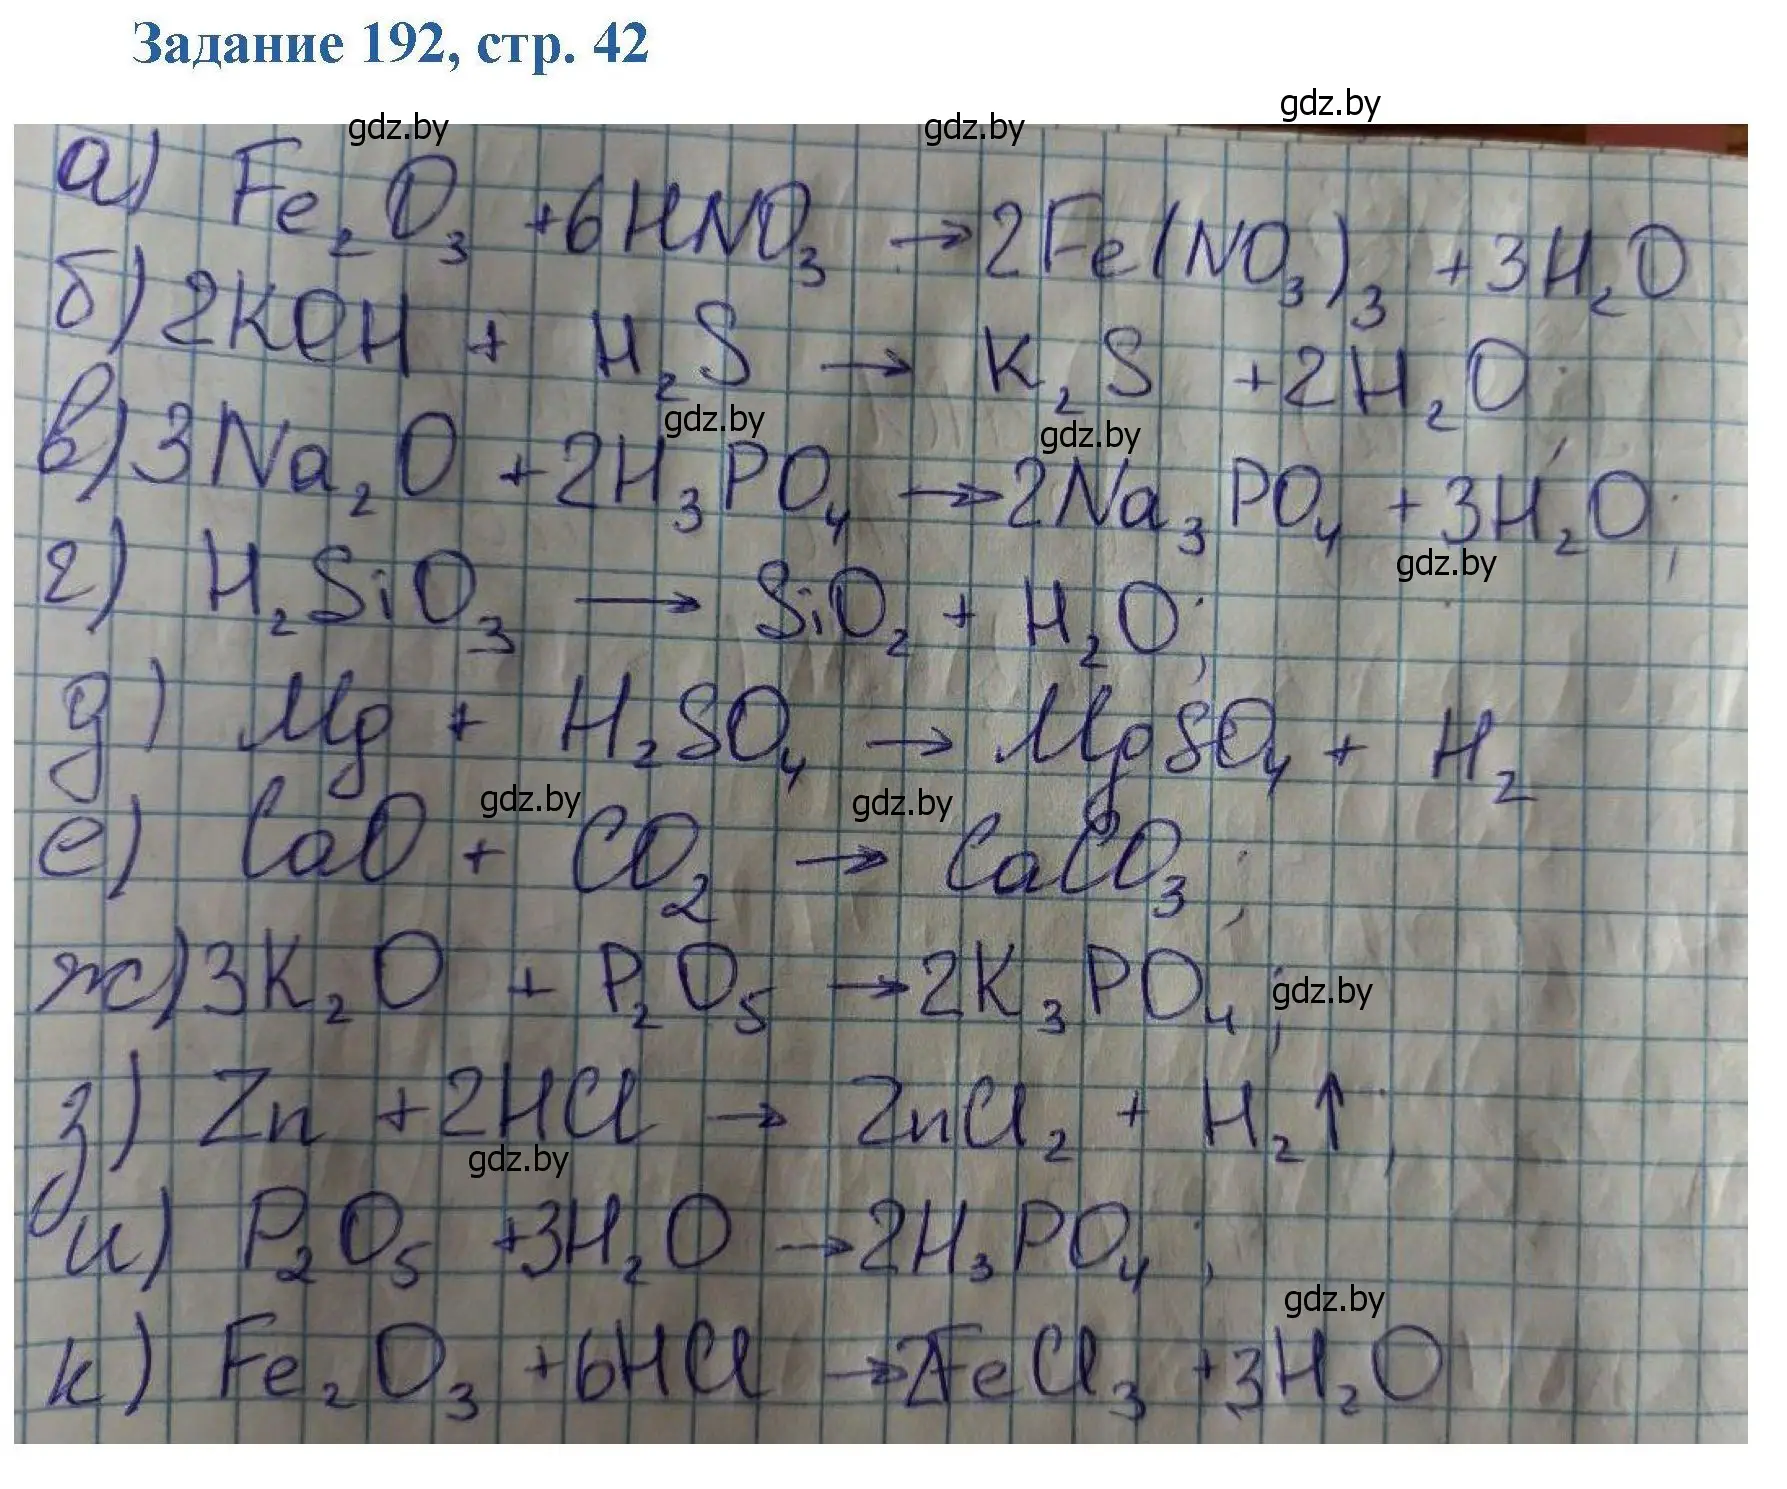 Задание 192, стр. 42
gdz.by
gdz.by gdz.by
а) Fe₂O₃ +6HNO₃ → 2Fe(NO₃)₃ +3H₂O
б) 2KOH + H₂S → K₂S +2H₂O;
gdz.by gdz.by
в) 3Na₂O +2H₃PO₄ → 2Na₃PO₄ +3H₂O;
gdz.by
г) H₂SiO₃ → SiO₂ + H₂O;
д) Mg + H₂SO₄ → MgSO₄ + H₂
gdz.by gdz.by
е) CaO + CO₂ → CaCO₃;
ж) 3K₂O + P₂O₅ → 2K₃PO₄; gdz.by
з) Zn +2HCl → ZnCl₂ + H₂↑;
gdz.by
и) P₂O₅ +3H₂O → 2H₃PO₄;
gdz.by
к) Fe₂O₃ +6HCl → 2FeCl₃ +3H₂O